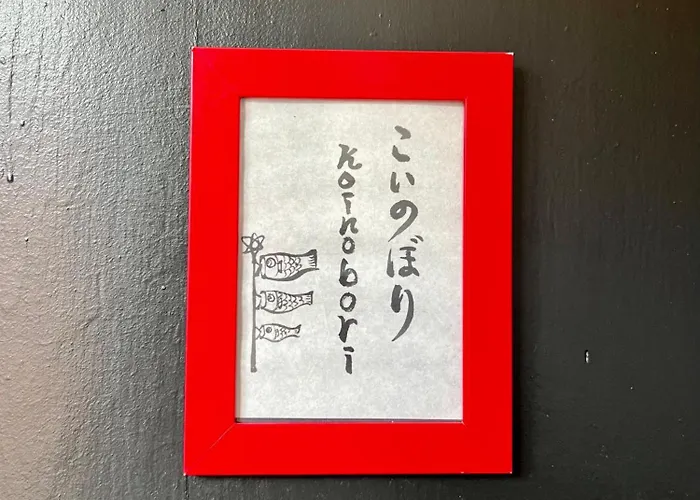 こいのぼり
koinobori